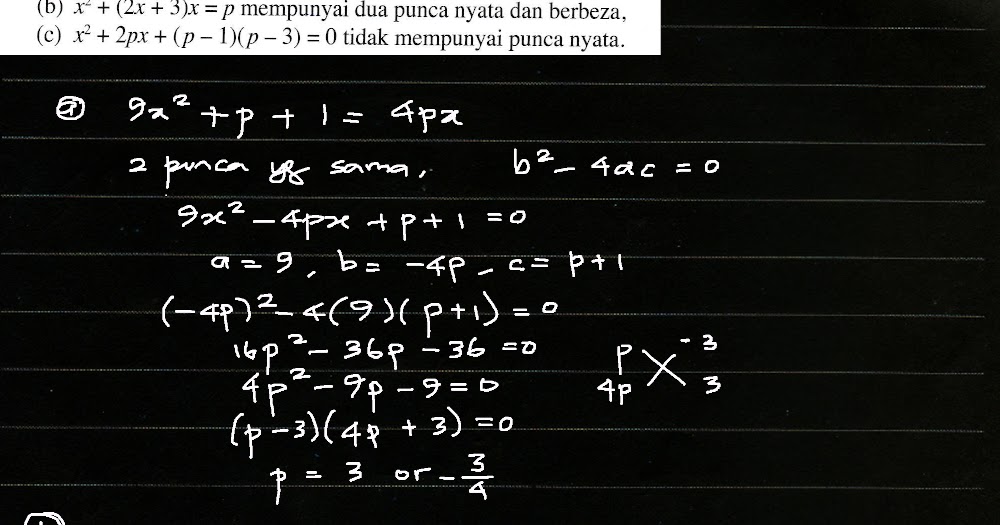 (b) x² + (2x + 3)x = p mempunyai dua punca nyata dan berbeza,
(c) x² + 2px + (p – 1)(p – 3) = 0 tidak mempunyai punca nyata.
ⓐ 9x² + p + 1 = 4px
2 punca yg sama, b² – 4ac = 0
9x² – 4px + p + 1 = 0
a = 9, b = –4p, c = p + 1
(–4p)² – 4(9)(p+1) = 0
16p² – 36p – 36 = 0
p -3
4p² – 9p – 9 = 0
4p 3
(p – 3)(4p + 3) = 0
p = 3 or – 3/4